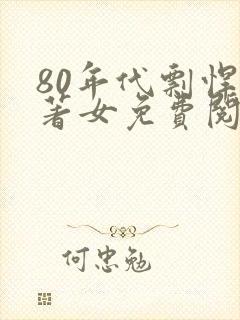 80年代剽悍
著女免費閱
何忠勉